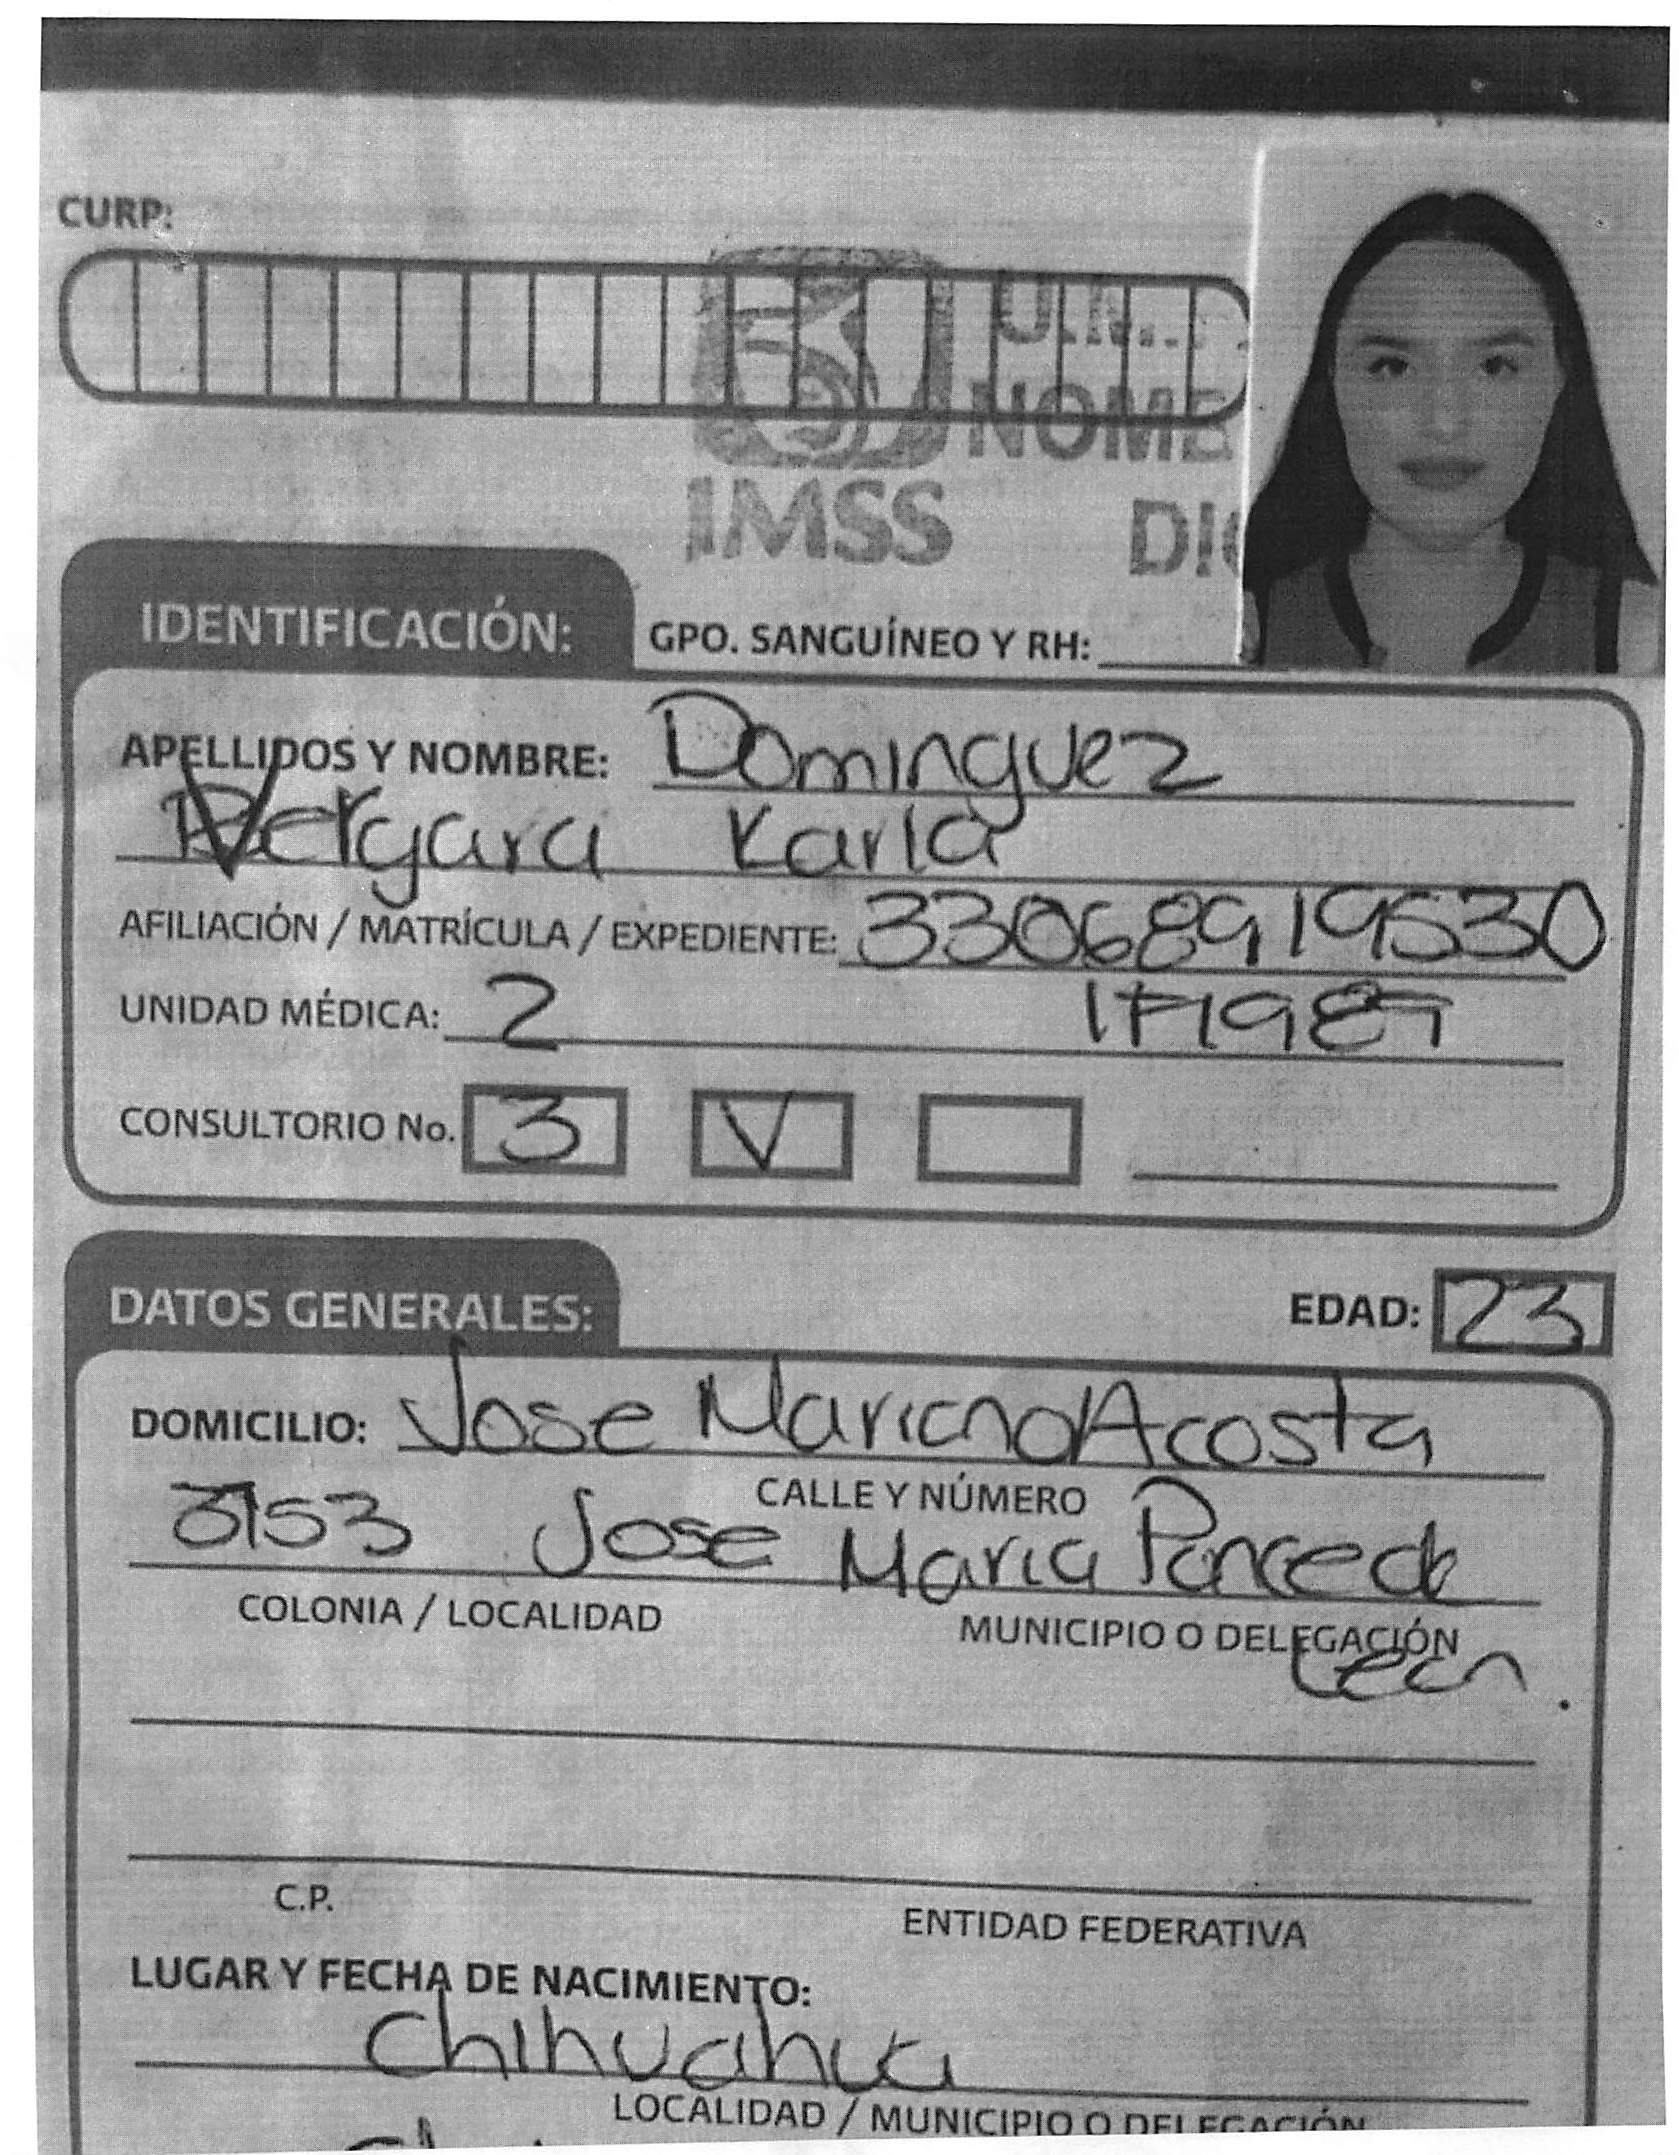 CURP:
U.M.
NOMB
IMSS
DI
IDENTIFICACIÓN:
GPO. SANGUÍNEO Y RH:
APELLIDOS Y NOMBRE: Dominguez
Vergara Karla
AFILIACIÓN / MATRÍCULA / EXPEDIENTE: 33068919530
UNIDAD MÉDICA: 2 1F1989
CONSULTORIO No. 3 V
DATOS GENERALES:
EDAD: 23
DOMICILIO: Jose Mariano Acosta
CALLE Y NÚMERO
3153 Jose Maria Ponce de
COLONIA / LOCALIDAD MUNICIPIO O DELEGACIÓN
Leon.
C.P. ENTIDAD FEDERATIVA
LUGAR Y FECHA DE NACIMIENTO:
Chihuahua
LOCALIDAD / MUNICIPIO O DELEGACIÓN